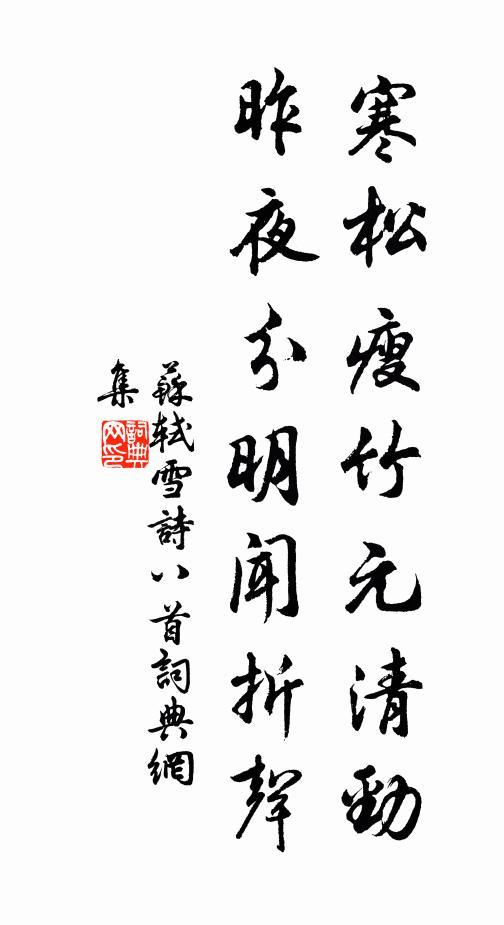 寒松瘦竹元清勁
昨夜分明聞折聲
蘇軾雪詩八首詞典網
集
詞典網印